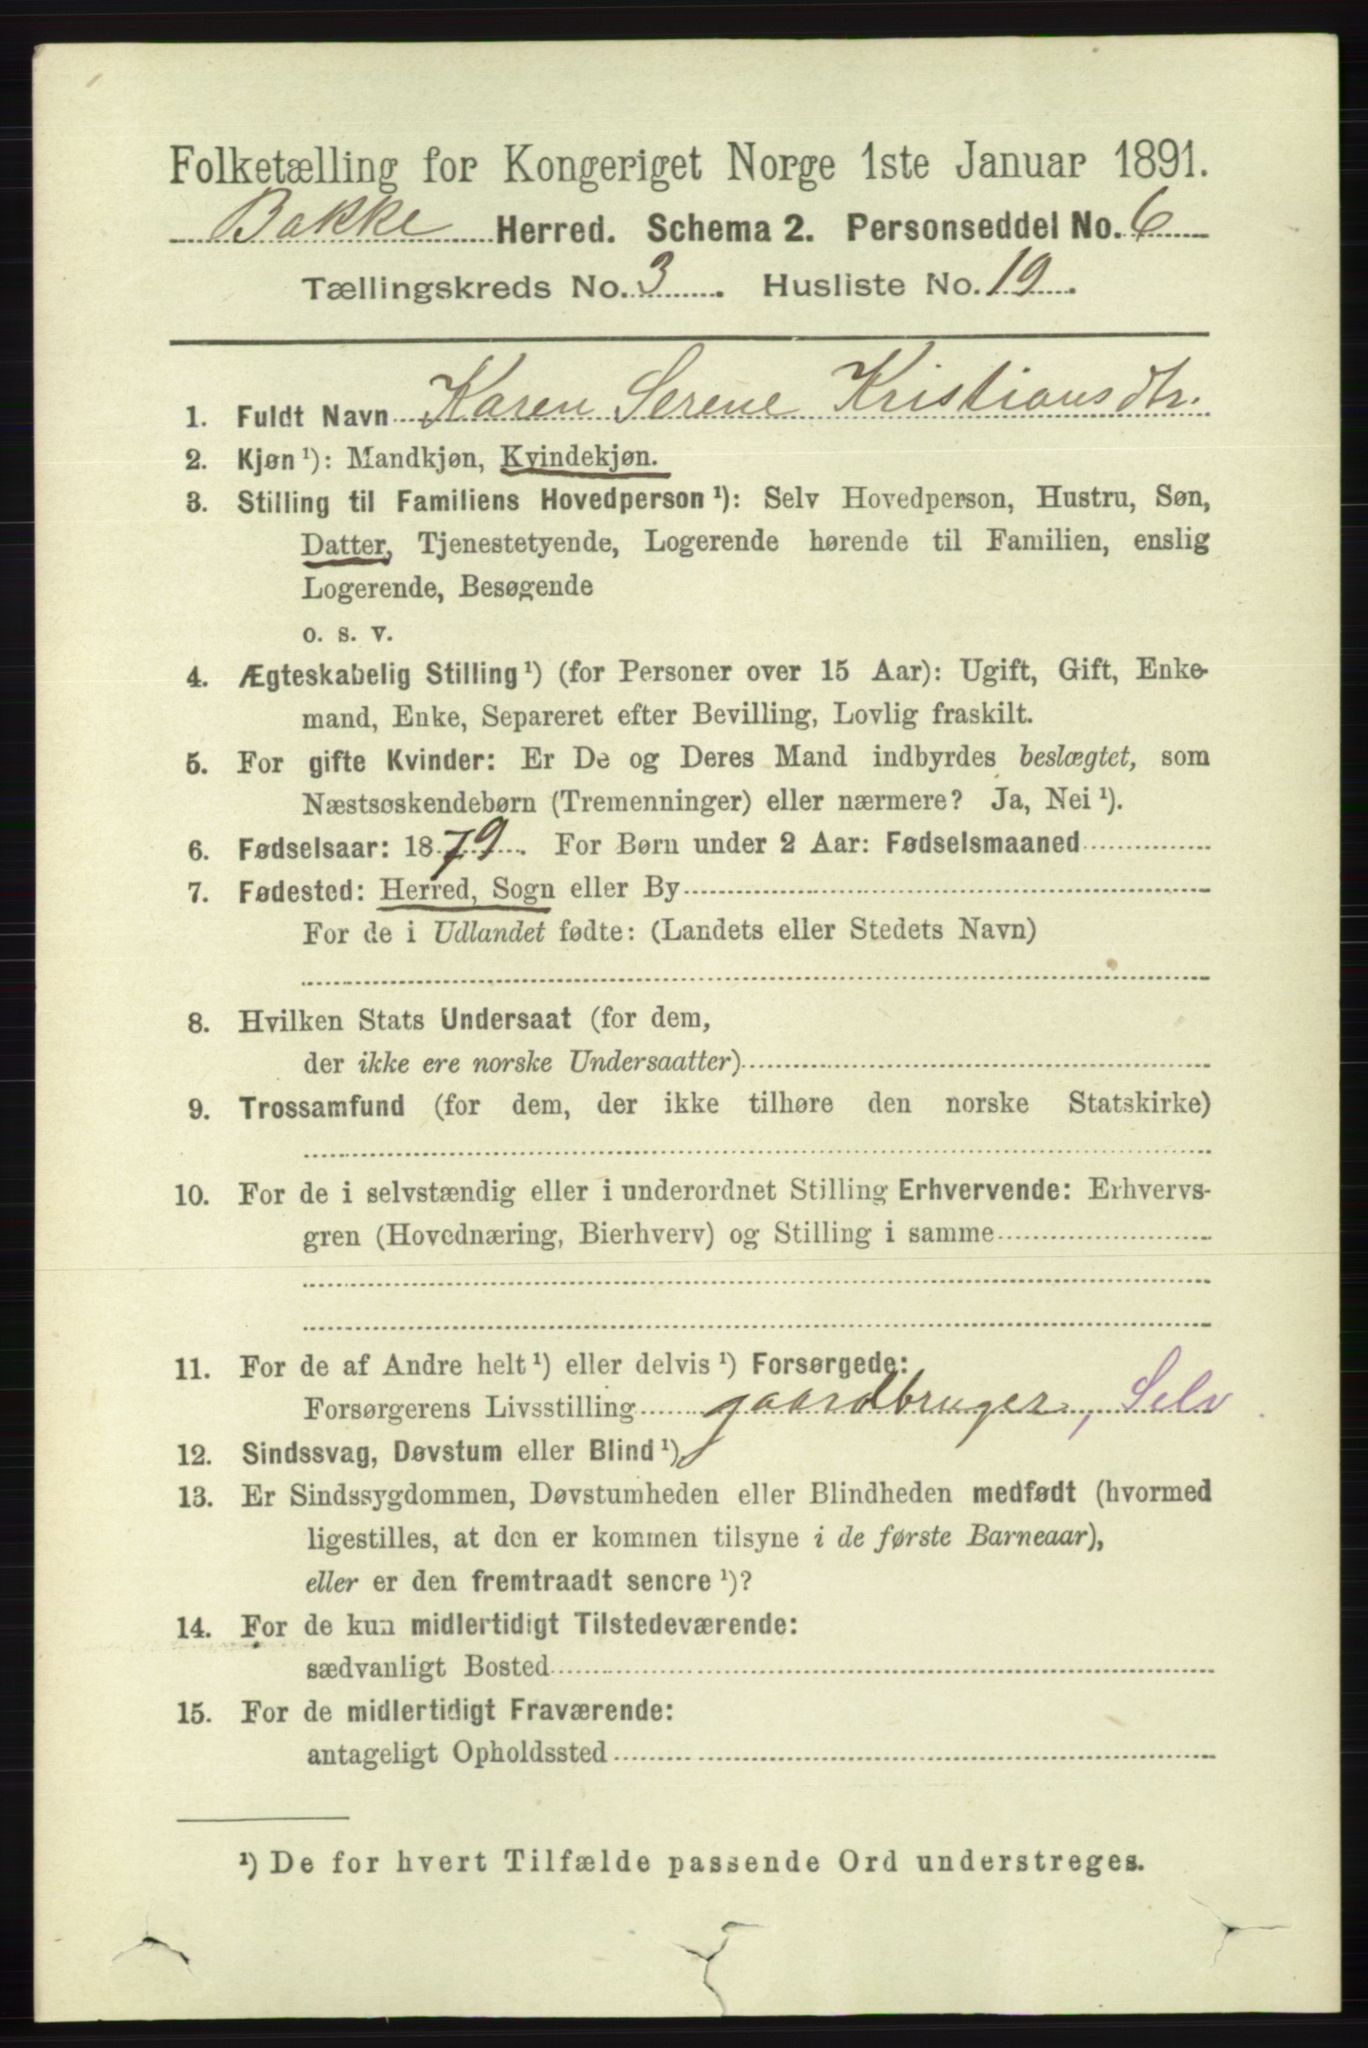 Folketælling for Kongeriget Norge 1ste Januar 1891.
Bakke Herred. Schema 2. Personseddel No. 6
Tællingskreds No. 3. Husliste No. 19.
1. Fuldt Navn Karen Serene Kristiansdtr.
2. Kjøn ¹): Mandkjøn, Kvindekjøn.
3. Stilling til Familiens Hovedperson ¹): Selv Hovedperson, Hustru, Søn,
Datter, Tjenestetyende, Logerende hørende til Familien, enslig
Logerende, Besøgende
o. s. v.
4. Ægteskabelig Stilling ¹) (for Personer over 15 Aar): Ugift, Gift, Enke-
mand, Enke, Separeret efter Bevilling, Lovlig fraskilt.
5. For gifte Kvinder: Er De og Deres Mand indbyrdes beslægtet, som
Næstsøskendebørn (Tremenninger) eller nærmere? Ja, Nei ¹).
6. Fødselsaar: 1879. For Børn under 2 Aar: Fødselsmaaned
7. Fødested: Herred, Sogn eller By
For de i Udlandet fødte: (Landets eller Stedets Navn)
8. Hvilken Stats Undersaat (for dem,
der ikke ere norske Undersaatter)
9. Trossamfund (for dem, der ikke tilhøre den norske Statskirke)
10. For de i selvstændig eller i underordnet Stilling Erhvervende: Erhvervs-
gren (Hovednæring, Bierhverv) og Stilling i samme
11. For de af Andre helt ¹) eller delvis ¹) Forsørgede:
Forsørgerens Livsstilling gaardbruger, Selv
12. Sindssvag, Døvstum eller Blind ¹),
13. Er Sindssygdommen, Døvstumheden eller Blindheden medfødt (hvormed
ligestilles, at den er kommen tilsyne i de første Barneaar),
eller er den fremtraadt senere ¹)?
14. For de kun midlertidigt Tilstedeværende:
sædvanligt Bosted
15. For de midlertidigt Fraværende:
antageligt Opholdssted
¹) De for hvert Tilfælde passende Ord understreges.